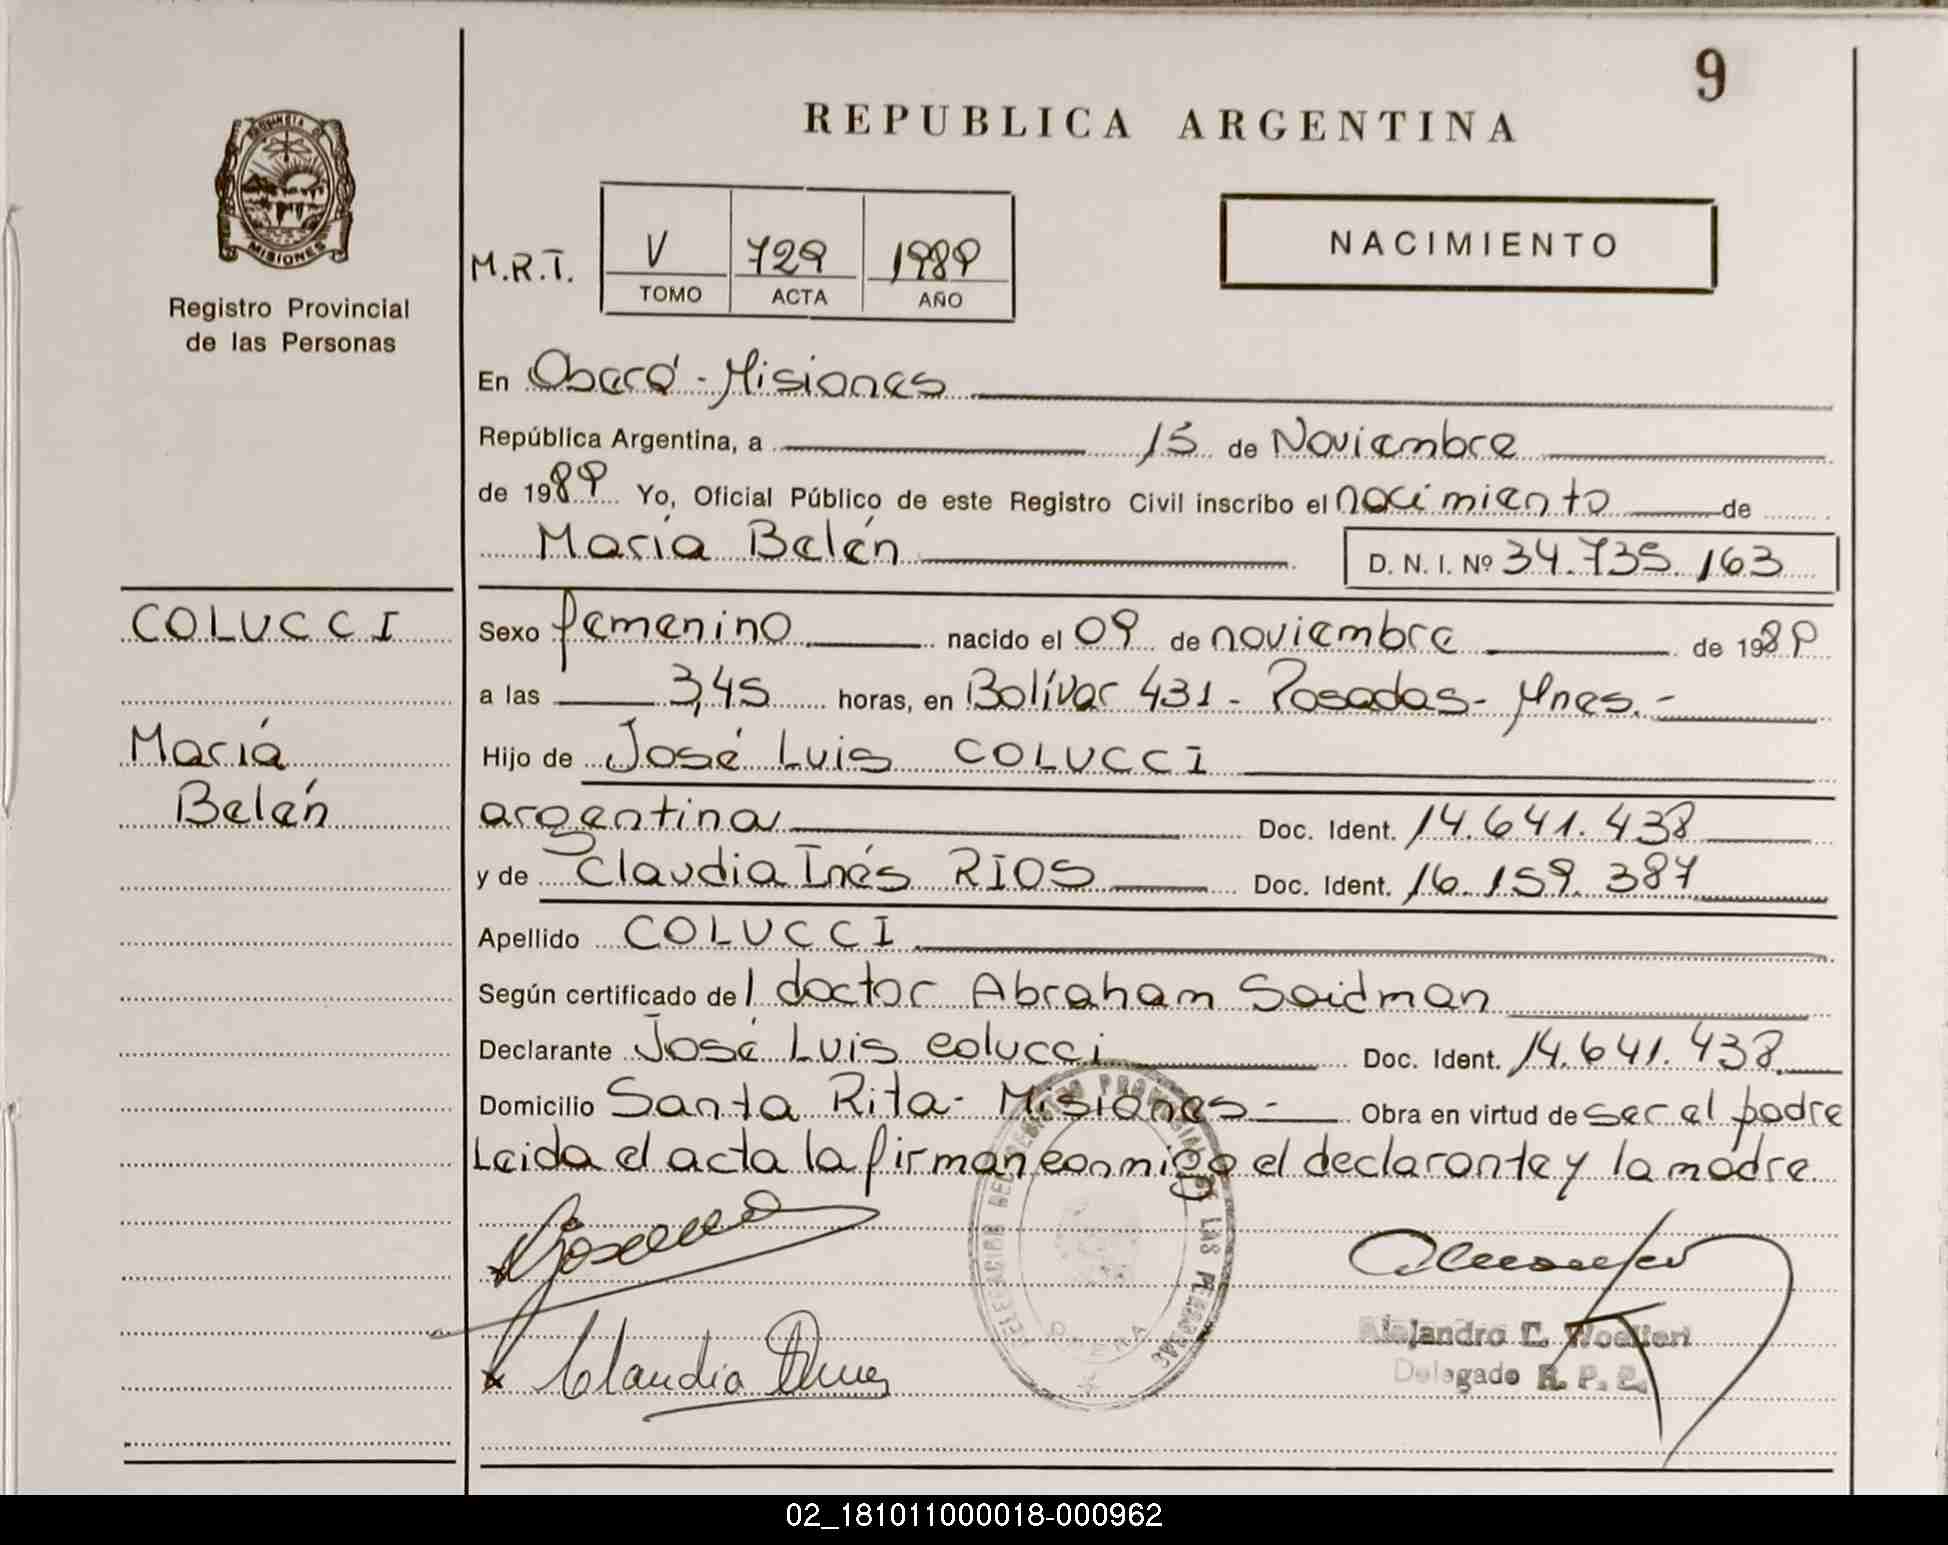 9
REPUBLICA ARGENTINA
PROVINCIA DE
MISIONES
Registro Provincial
de las Personas
M.R.T.
V 729 1989
TOMO ACTA AÑO
NACIMIENTO
En Oberá - Misiones
República Argentina, a 15 de Noviembre
de 1989 Yo, Oficial Público de este Registro Civil inscribo el nacimiento de
María Belén D. N. I. Nº 34.735.163
COLUCCI
María
Belén
Sexo femenino nacido el 09 de noviembre de 1989
a las 3,45 horas, en Bolívar 431 - Posadas - Mnes.-
Hijo de José Luis COLUCCI
argentina Doc. Ident. 14.641.438
y de Claudia Inés RIOS Doc. Ident. 16.159.387
Apellido COLUCCI
Según certificado del doctor Abraham Saidman
Declarante José Luis Colucci Doc. Ident. 14.641.438
Domicilio Santa Rita - Misiones - Obra en virtud de ser el padre
Leida el acta la firman conmigo el declarante y la madre.
DELEGACION REGISTRO PROVINCIAL DE LAS PERSONAS
OBERA
Claudia
Alejandro C.
Delegado R. P. P.
02_181011000018-000962